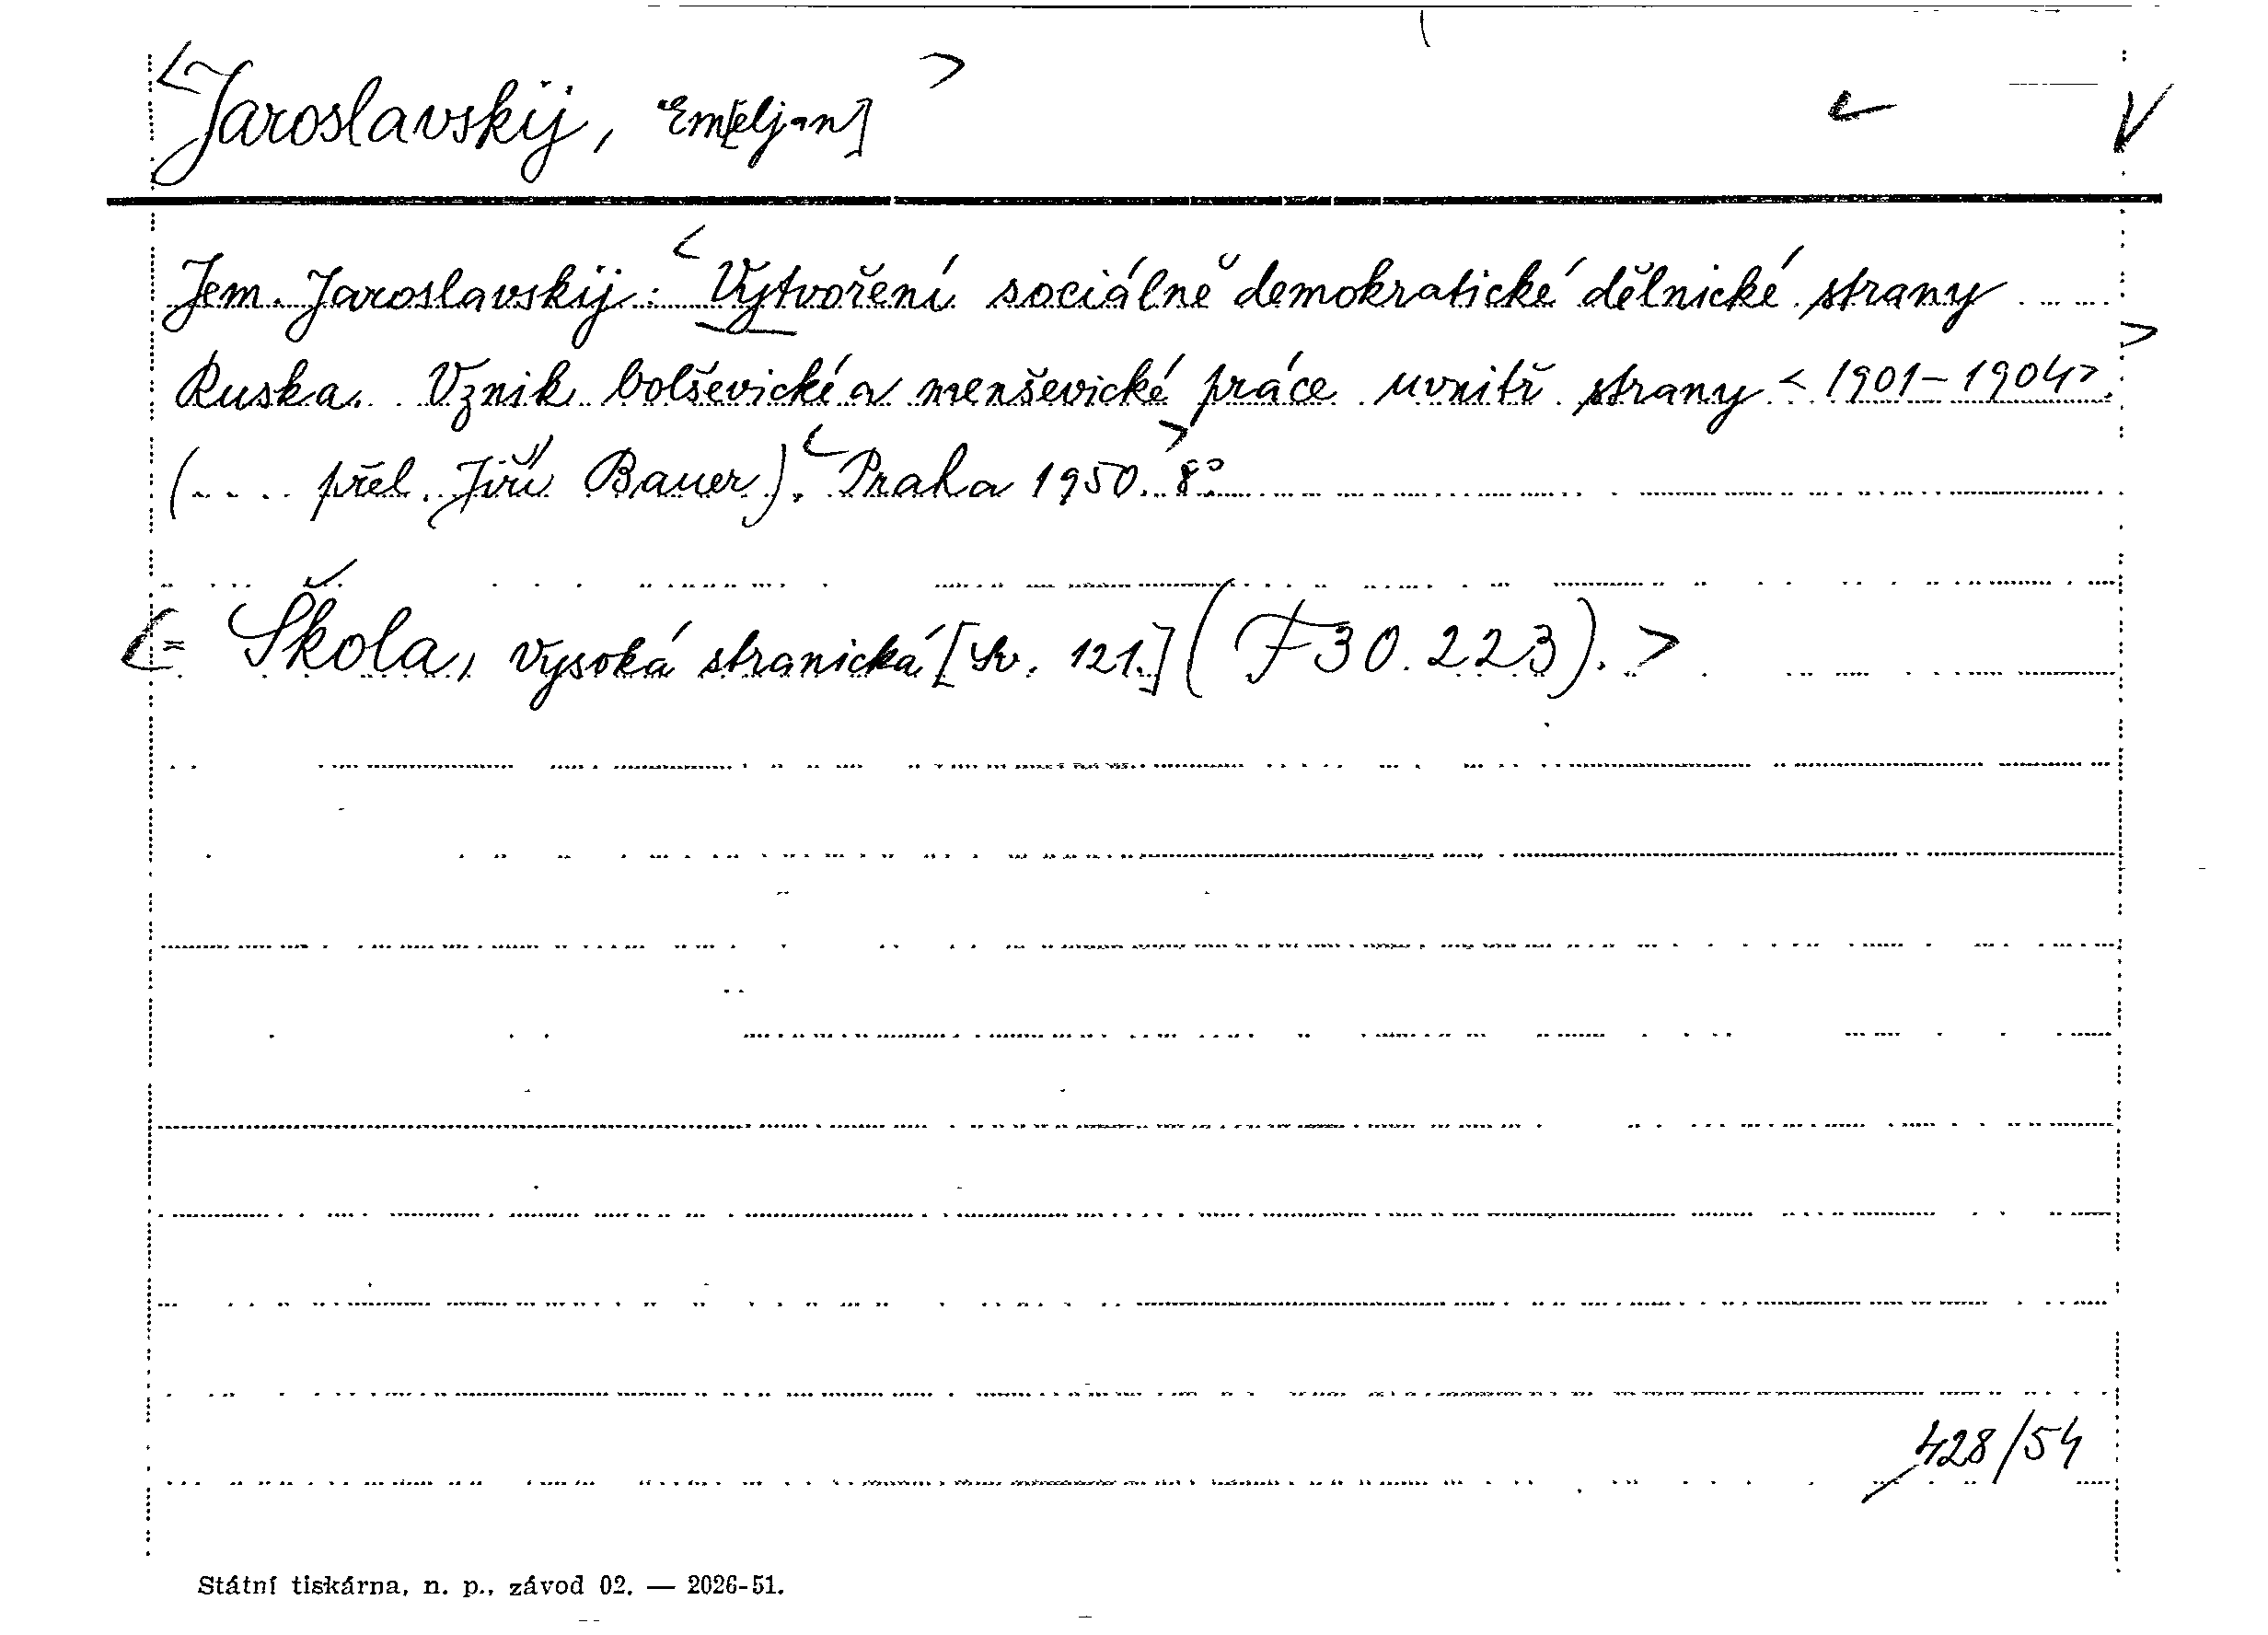 <Jaroslavskij, Em[eljan]>
Jem. Jaroslavskij: <Vytvoření sociálně demokratické dělnické strany
Ruska. Vznik bolševické a menševické práce uvnitř strany <1901-1904>>.
(.... přel. Jiří Bauer). <Praha 1950.> 8°.
<= Škola, vysoká stranická [Sv. 121.] (F 30.223).>
428/54
Státní tiskárna, n. p., závod 02. — 2026-51.